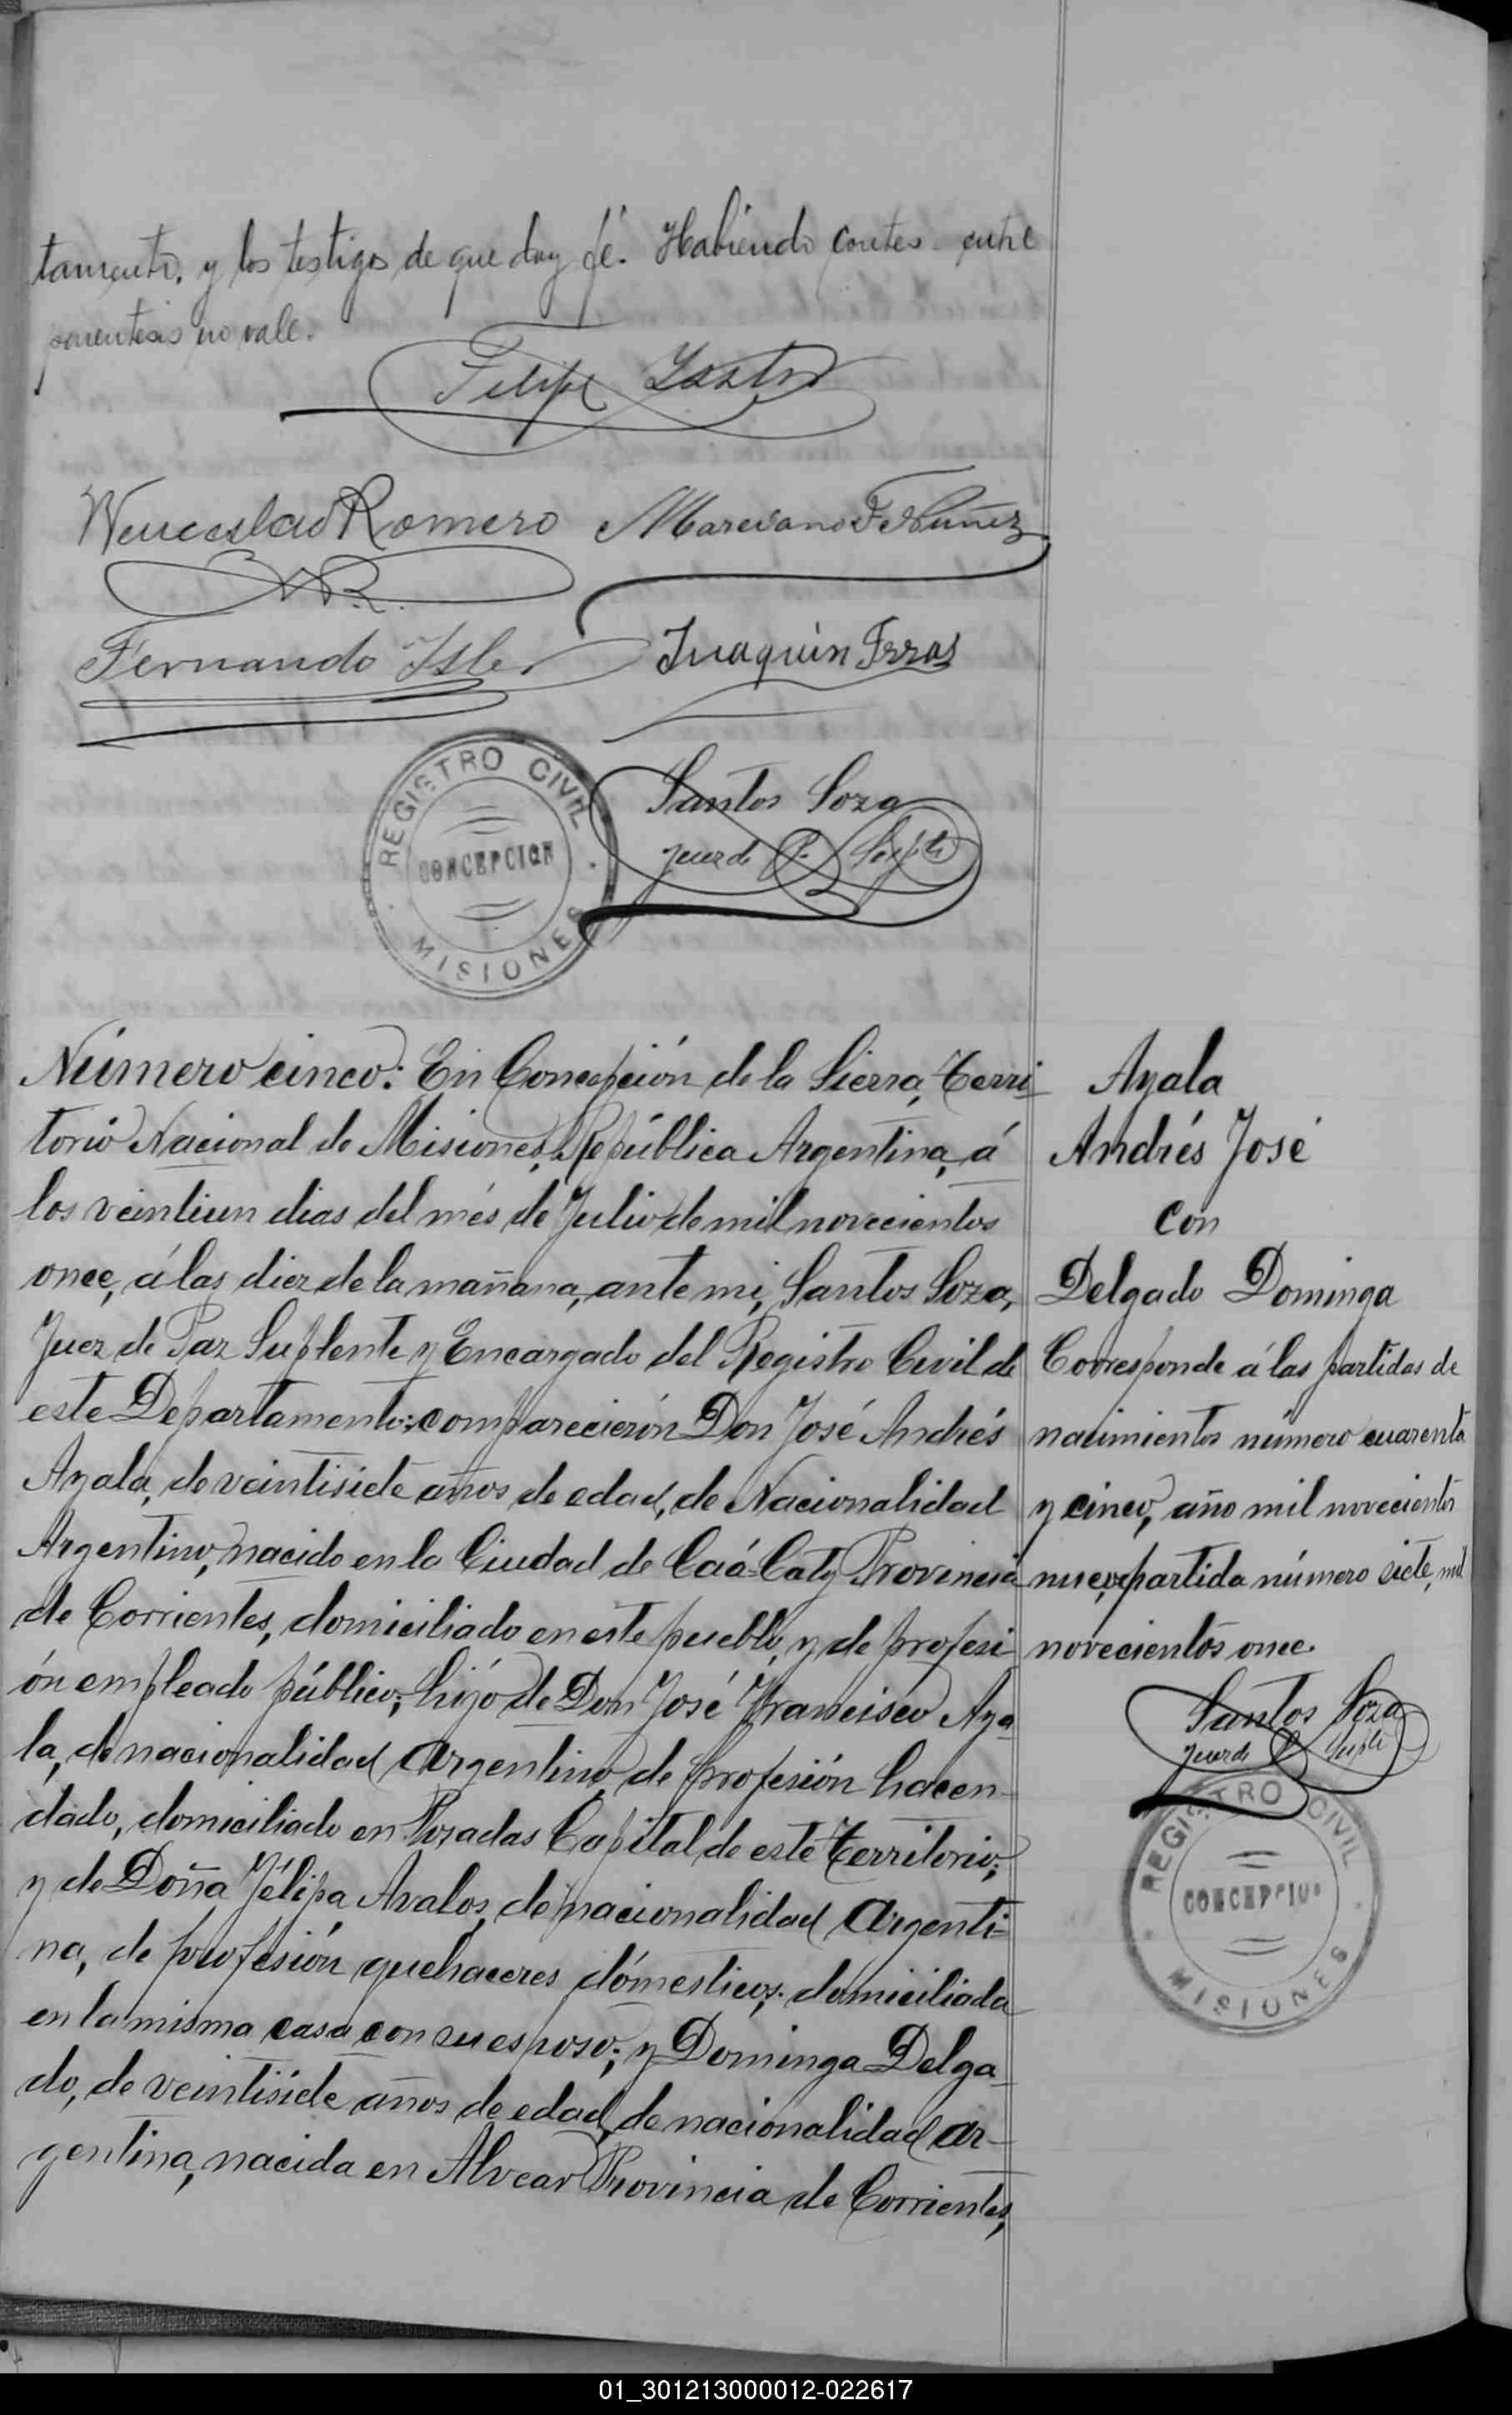 tamento. y los testigos de que doy fé. Habiendo contes- entre
parentesis no vale.
Felipe
Wenceslao Romero Marciano F Nuñez
WR.
Fernando Isler Juaquin Frras
REGISTRO CIVIL
CONCEPCION
MISIONES
Santos Soza
Juez de P. Suplte
Número cinco: En Concepción de la Sierra, Terri
torio Nacional de Misiones, República Argentina, á
los veintiun dias del més de Julio de mil novecientos
once, á las diez de la mañana, ante mi, Santos Soza,
Juez de Paz Suplente y Encargado del Registro Civil de
este Departamento: comparecierón Don José Andrés
Ayala, de veintisiete años de edad, de Nacionalidad
Argentino, nacido en la Ciudad de Caá-Caty Provincia
de Corrientes, domiciliado en este pueblo, y de profesi
ón empleado público; hijó de Don José Francisco Aya
la, de nacionalidad Argentino, de profesión hacen-
dado, domiciliado en Posadas Capital de este Territorio;
y de Doña Félipa Avalos, de nacionalidad Argenti-
na, de profesión quehaceres dómesticos; domiciliada
en la misma casa con su esposo; y Dominga Delga-
do, de veintisiete años de edad, de nacionalidad Ar-
gentina, nacida en Alvear Provincia de Corrientes,
Ayala
Andrés José
Con
Delgado Dominga
Corresponde á las partidas de
nacimientos número cuarenta
y cinco, año mil novecientos
nueve, partida número siete, mil
novecientos once.
Santos Soza
Juez de P. Suplte
REGISTRO CIVIL
CONCEPCION
MISIONES
01_301213000012-022617